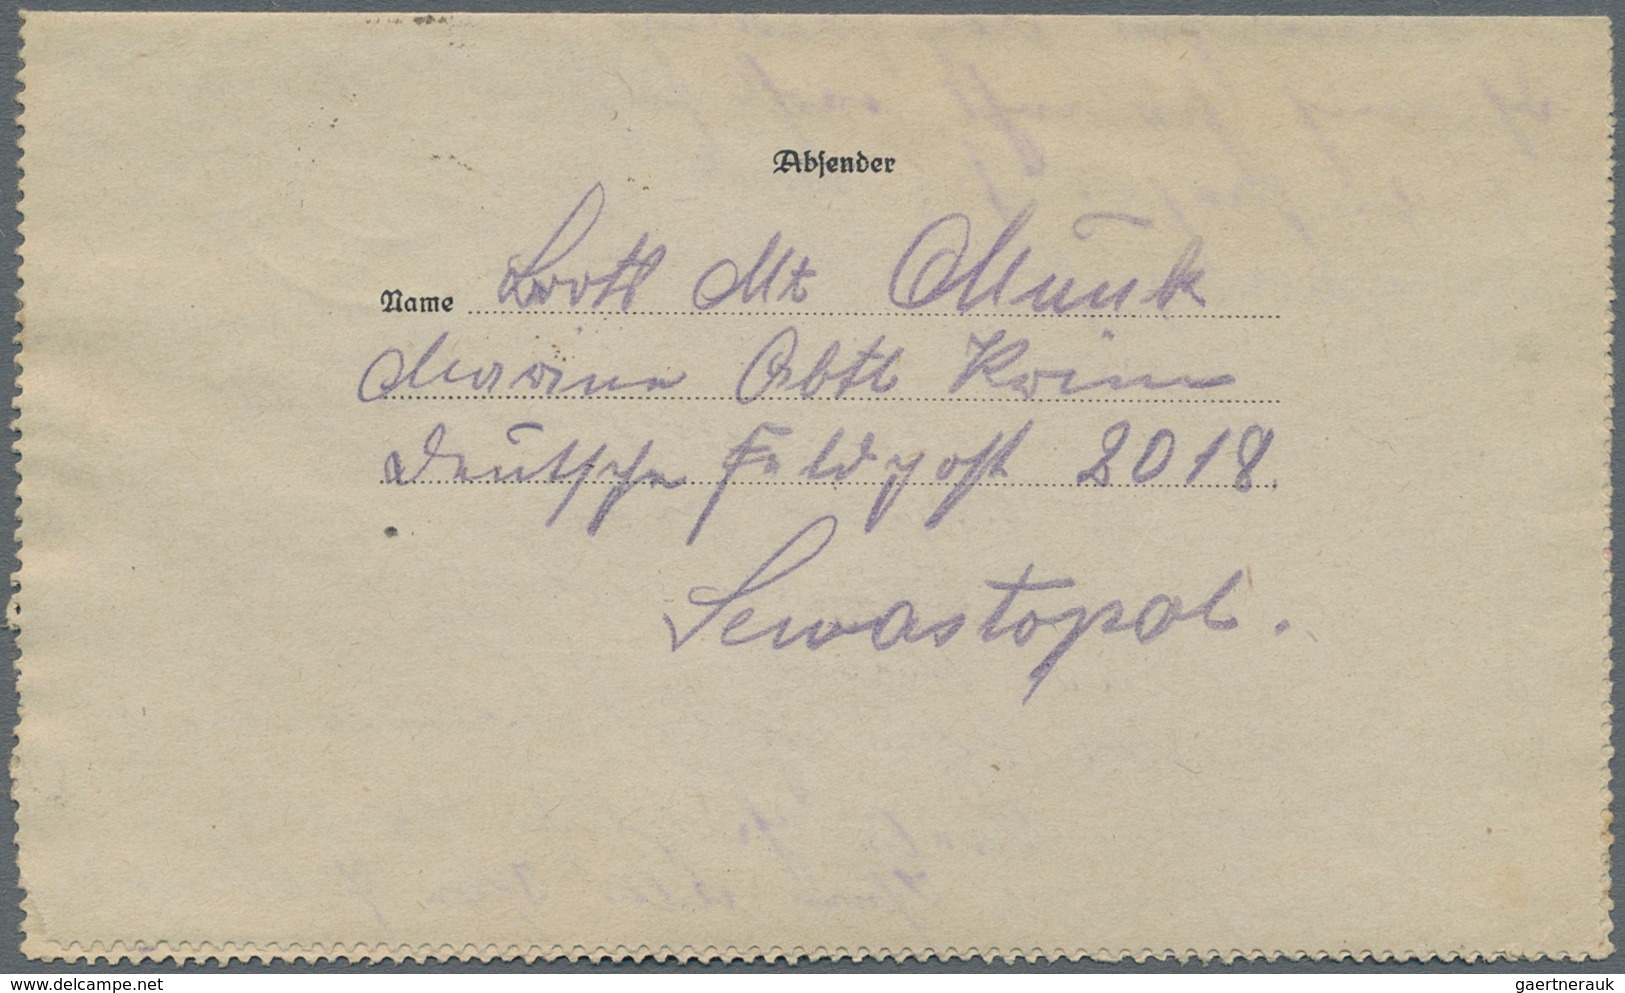 Absender
Name Bootl Mt Munk
Marine Abtl Krim
Deutsche Feldpost 2018.
Sewastopol.
delcampe.net
gaertnerauk